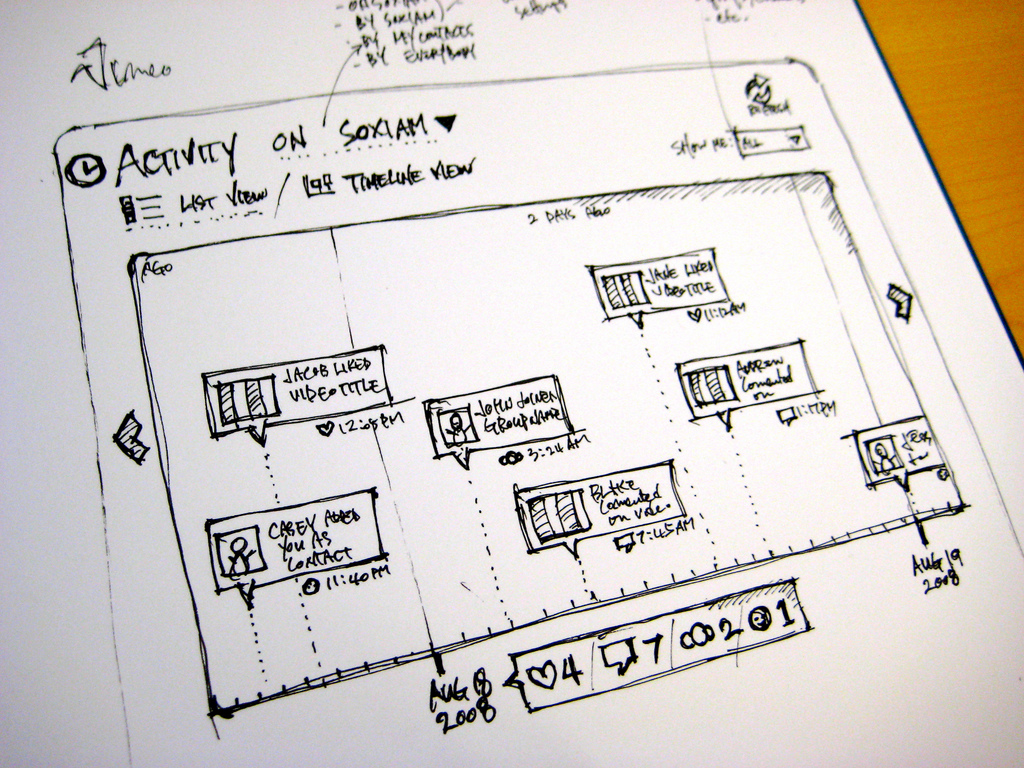 - BY SOXIAM
- BY MY CONTACTS
- BY EVERYBODY
settings
- etc.
REFRESH
ACTIVITY ON SOXIAM
SHOW ME: ALL
LIST VIEW / TIMELINE VIEW
2 DAYS AGO
AGO
JANE LIKED
VIDEO TITLE
11:12AM
JACOB LIKED
VIDEO TITLE
12:05PM
JOHN JOINED
GROUP NAME
3:24AM
ANDREW
Comented
on
1:17PM
BLAKE
Comented
on video.
7:45AM
CASEY ADDED
YOU AS
CONTACT
11:40PM
AUG 19
2008
4 7 2 1
AUG 18
2008